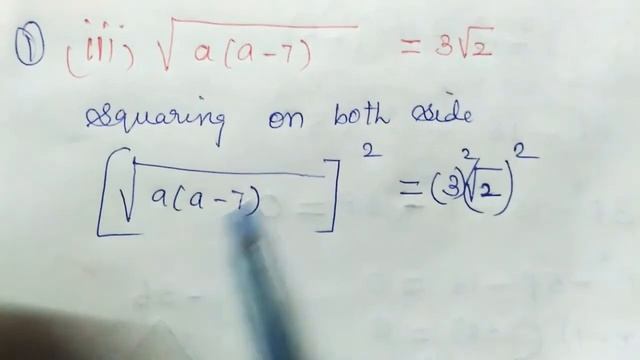 ① (iii) √a(a-7) = 3√2
Squaring on both side
[√a(a-7)]² = (3)²(√2)²